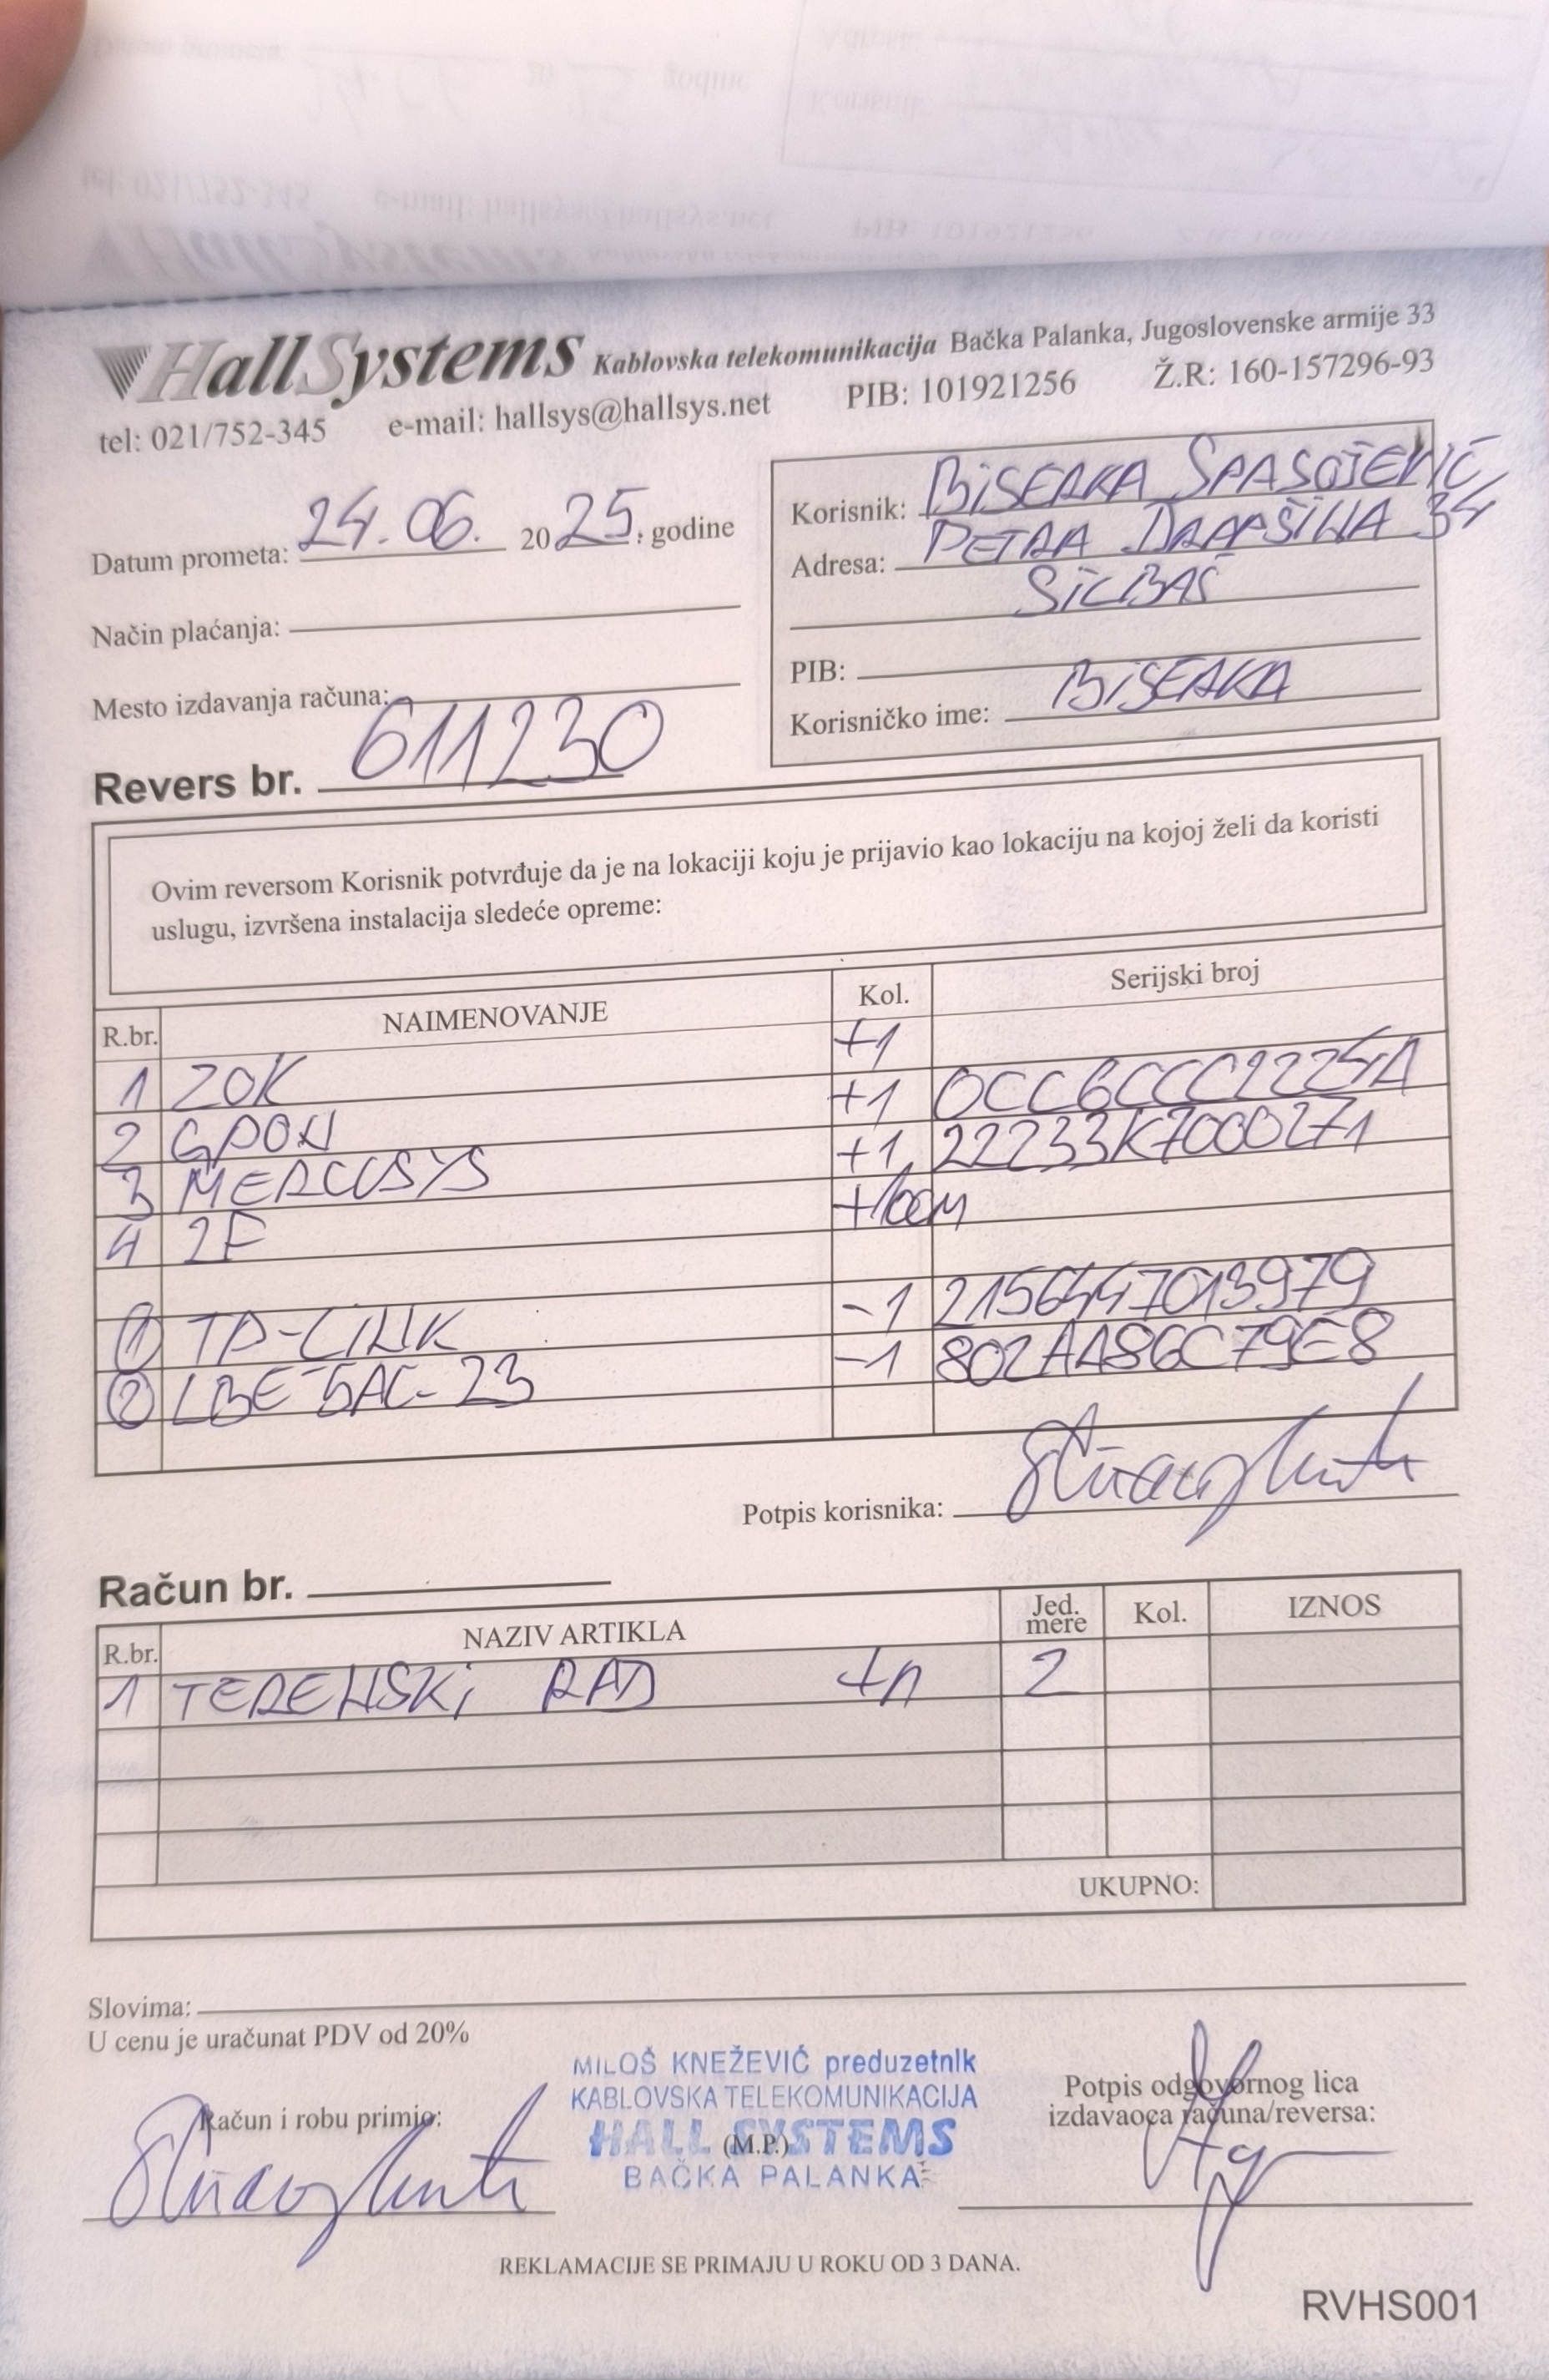 HallSystems Kablovska telekomunikacija Bačka Palanka, Jugoslovenske armije 33
tel: 021/752-345 e-mail: hallsys@hallsys.net PIB: 101921256 Ž.R: 160-157296-93
Datum prometa: 24.06. 2025. godine
Način plaćanja:
Mesto izdavanja računa:
Korisnik: BISERKA SPASOJEVIĆ
Adresa: PETRA DRAPŠINA 34
SILBAŠ
PIB:
Korisničko ime: BISERKA
Revers br. 611230
Ovim reversom Korisnik potvrđuje da je na lokaciji koju je prijavio kao lokaciju na kojoj želi da koristi
uslugu, izvršena instalacija sledeće opreme:
R.br. NAIMENOVANJE Kol. Serijski broj
1 ZOK +1
2 GPON +1
3 MERCUSYS +1 22233K7000271
4 2F
1 TP-LINK -1
2 LBE 5AC-23 -1 802AA86C79E8
Potpis korisnika:
Račun br.
R.br. NAZIV ARTIKLA Jed. mere Kol. IZNOS
1 TERENSKI RAD 2
UKUPNO:
Slovima:
U cenu je uračunat PDV od 20%
Račun i robu primio:
MILOŠ KNEŽEVIĆ preduzetnik
KABLOVSKA TELEKOMUNIKACIJA
HALL SYSTEMS
(M.P.)
BAČKA PALANKA
Potpis odgovornog lica
izdavaoca računa/reversa:
REKLAMACIJE SE PRIMAJU U ROKU OD 3 DANA.
RVHS001